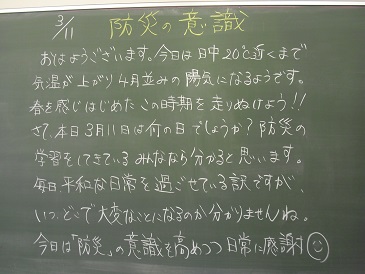 3/11 防災の意識
おはようございます。今日は日中20℃近くまで
気温が上がり4月並みの陽気になるようです。
春を感じはじめたこの時期を走りぬけよう!!
さて、本日3月11日は何の日でしょうか?防災の
学習をしてきているみんなら分かると思います。
毎日、平和な日常を過ごせている訳ですが、
いつ、どこで大変なことになるのか分かりませんね。
今日は「防災」の意識を高めつつ日常に感謝